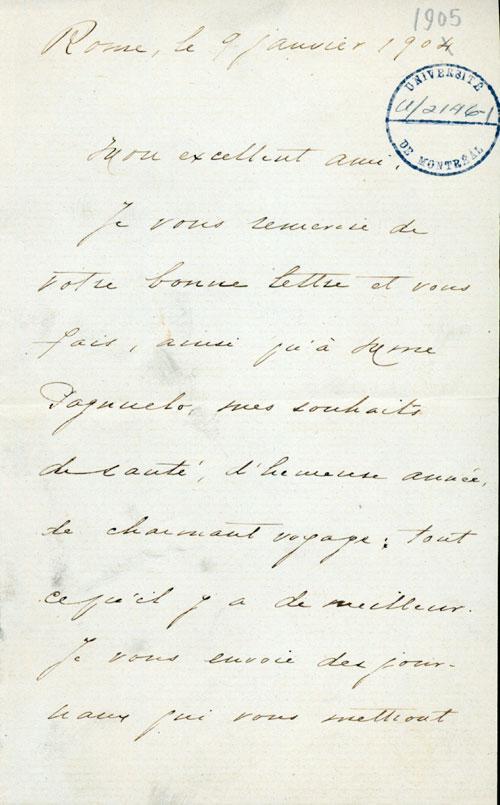 1905
Rome, le 9 janvier 1904
UNIVERSITÉ
U/2196-1
DE MONTRÉAL
Mon excellent ami,
Je vous remercie de
votre bonne lettre et vous
fais, ainsi qu'à Mme
Pagnuelo, mes souhaits
de santé, d'heureuse année,
de charmant voyage; tout
ce qu'il y a de meilleur.
Je vous envoie des jour-
naux qui vous mettront